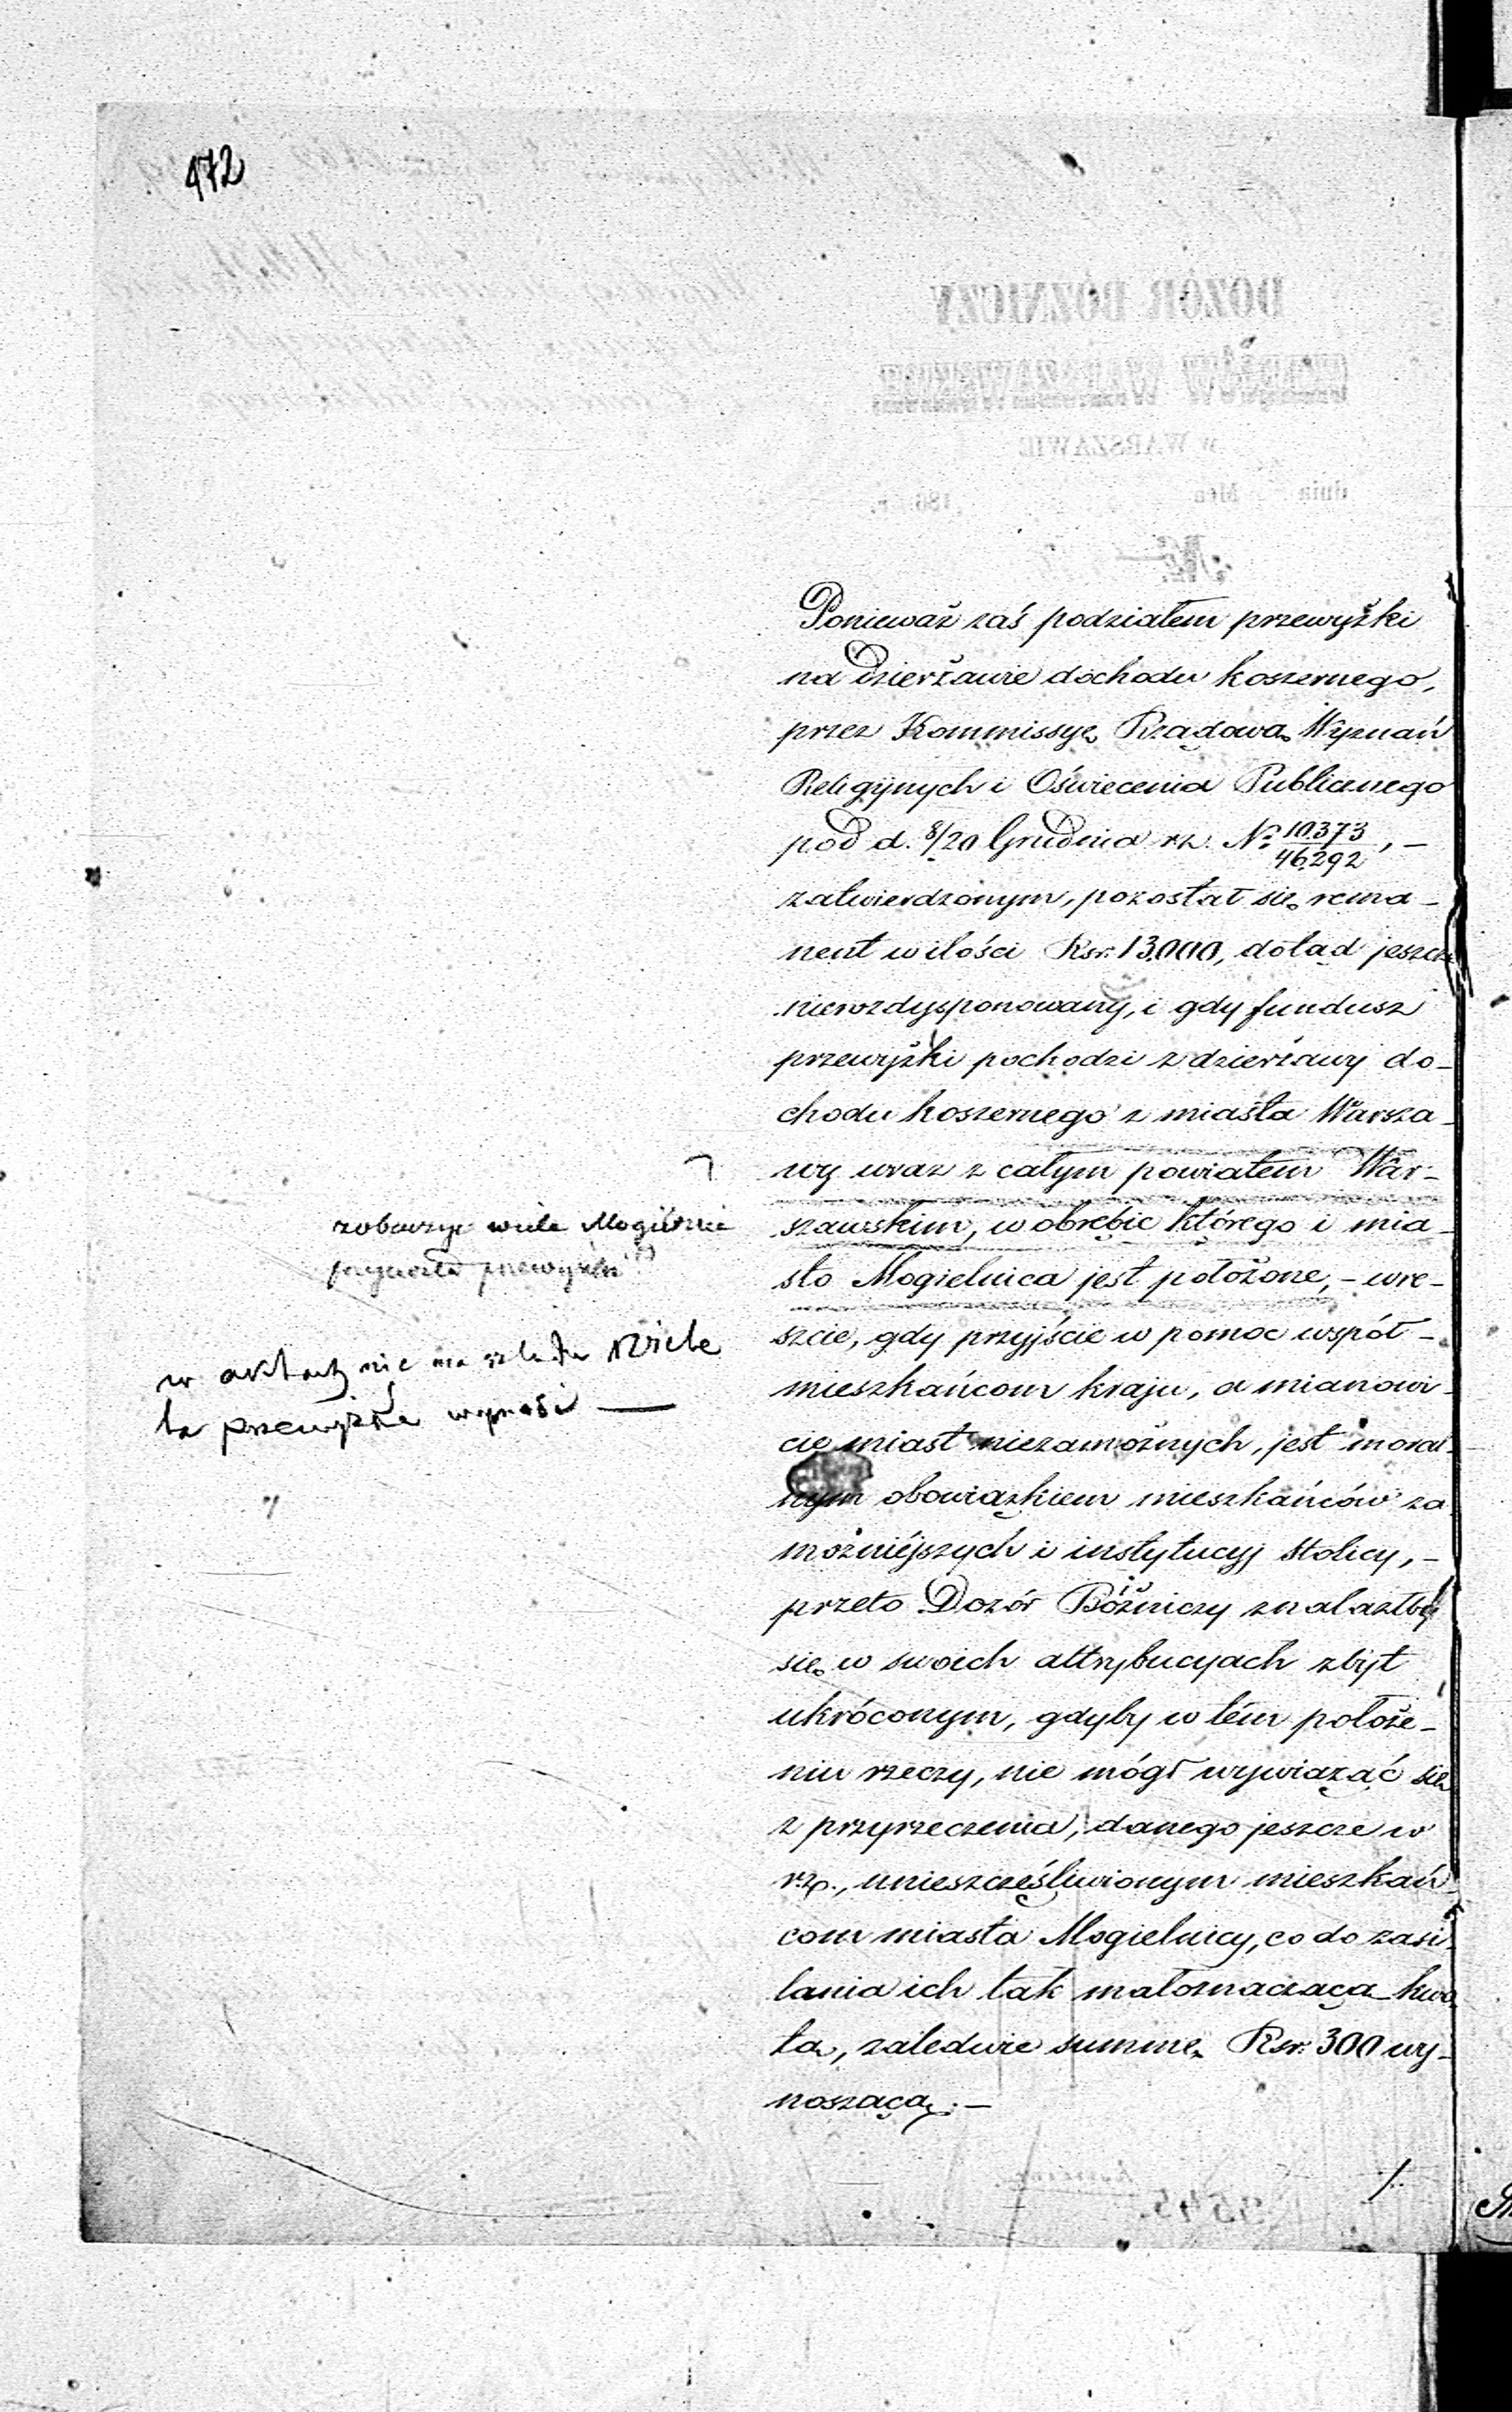 472
Ponieważ zaś podziałem przewyżki
na dzierżawie dochodu koszernego,
przez Kommissyę Rządową Wyznań
Religijnych i Oświecenia Publicznego
pod d. 8/20 Grudnia rz. No 10373/46292, –
zatwierdzonym, pozostał się rema-
nent w ilości Rsr. 13.000, dotąd jeszcze
nierozdysponowany, i gdy fundusz
przewyżki pochodzi z dzierżawy do-
chodu koszernego z miasta Warsza-
wy wraz z całym powiatem War-
szawskim, w obrębie którego i mia-
sto Mogielnica jest położone, – wre-
szcie, gdy przyjście w pomoc współ-
mieszkańcom kraju, a mianowi-
cie miast niezamożnych, jest moral-
nym obowiązkiem mieszkańców za
możniejszych i instytucyj stolicy, –
przeto Dozór Bóżniczy znalazłby
się w swoich attrybucyach zbyt
ukróconym, gdyby w tém położe-
niu rzeczy, nie mógł wywiązać się
z przyrzeczenia, danego jeszcze w
r.z., unieszczęśliwionym mieszkań
com miasta Mogielnicy, co do zasi-
lania ich tak małoznaczącą kwo
tą, zaledwie summę Rsr. 300 wy-
noszącą. –
zobaczyć wiele Mogielnica
przewyżki
w aktach nie ma szladu wiele
ta przewyżka wynosi —
DOZÓR BÓŻNICZY
OKRĘGÓW WARSZAWSKICH
w WARSZAWIE
dnia Mca 186 r.
No
3545.